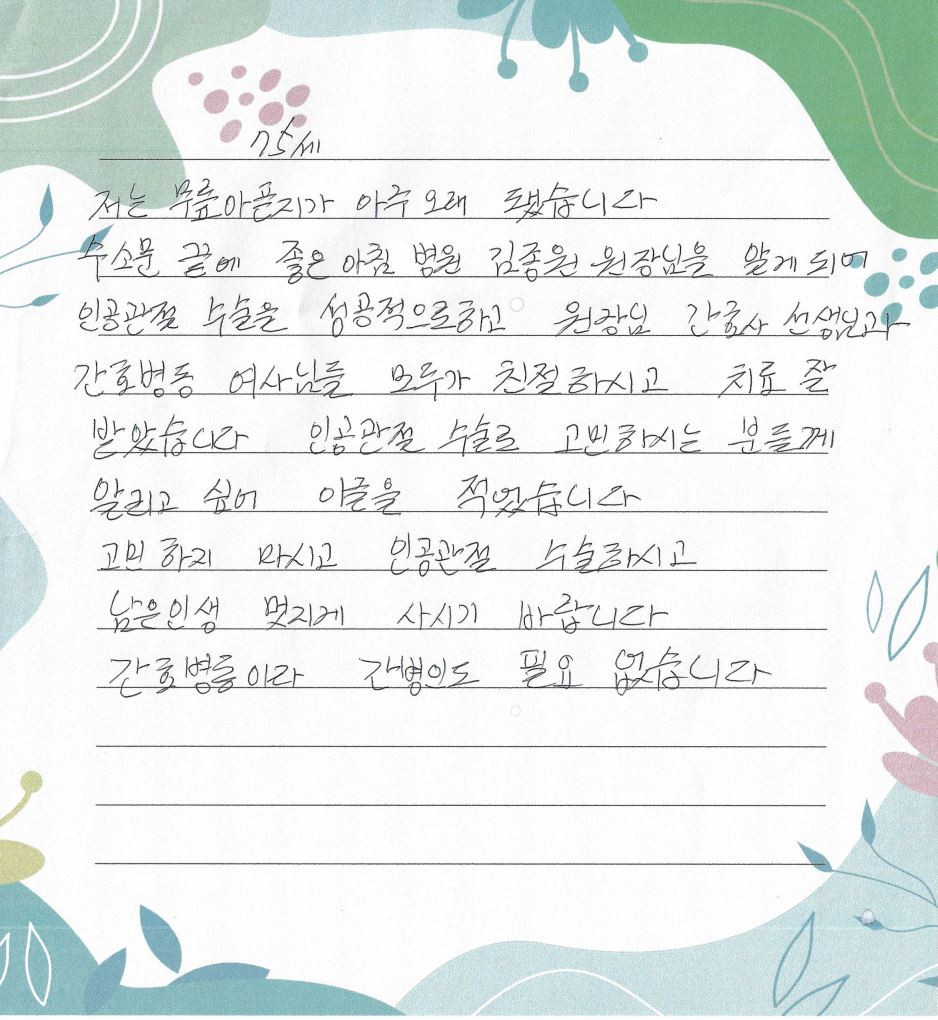 75세
저는 무릎아픈지가 아주 오래 됐습니다
수소문 끝에 좋은 아침 병원 김종원 원장님을 알게 되어
인공관절 수술을 성공적으로하고 원장님 간호사 선생님과
간호병동 여사님들 모두가 친절하시고 치료 잘
받았습니다 인공관절 수술로 고민하시는 분들께
알리고 싶어 이글을 적었습니다
고민하지 마시고 인공관절 수술하시고
남은인생 멋지게 사시기 바랍니다
간호병동이라 간병인도 필요 없습니다